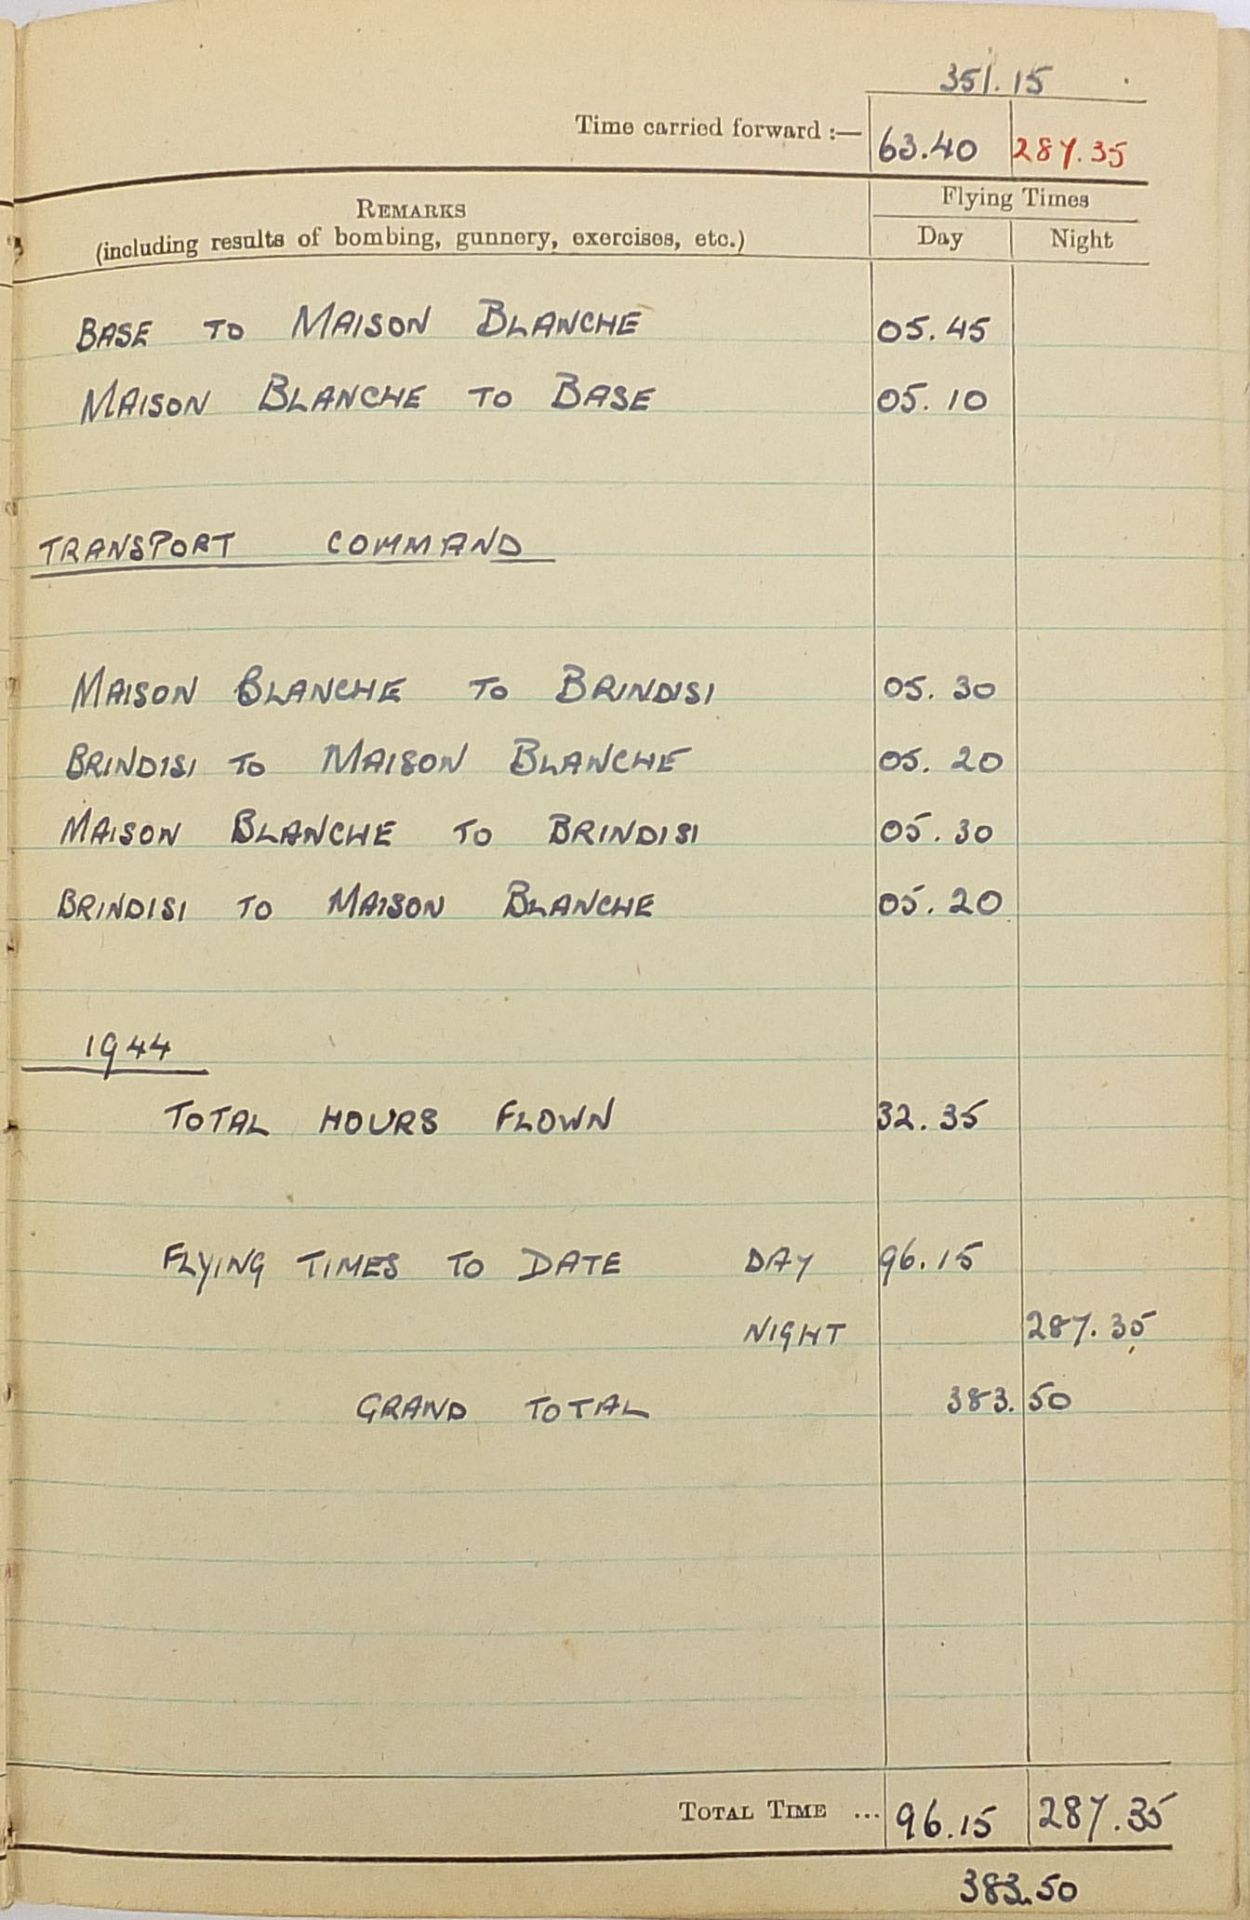 351.15
Time carried forward :— 63.40 287.35
REMARKS
(including results of bombing, gunnery, exercises, etc.)
Flying Times
Day Night
BASE TO MAISON BLANCHE 05.45
MAISON BLANCHE TO BASE 05.10
TRANSPORT COMMAND
MAISON BLANCHE TO BRINDISI 05.30
BRINDISI TO MAISON BLANCHE 05.20
MAISON BLANCHE TO BRINDISI 05.30
BRINDISI TO MAISON BLANCHE 05.20
1944
TOTAL HOURS FLOWN 32.35
FLYING TIMES TO DATE DAY 96.15
NIGHT 287.35
GRAND TOTAL 383.50
TOTAL TIME ... 96.15 287.35
383.50